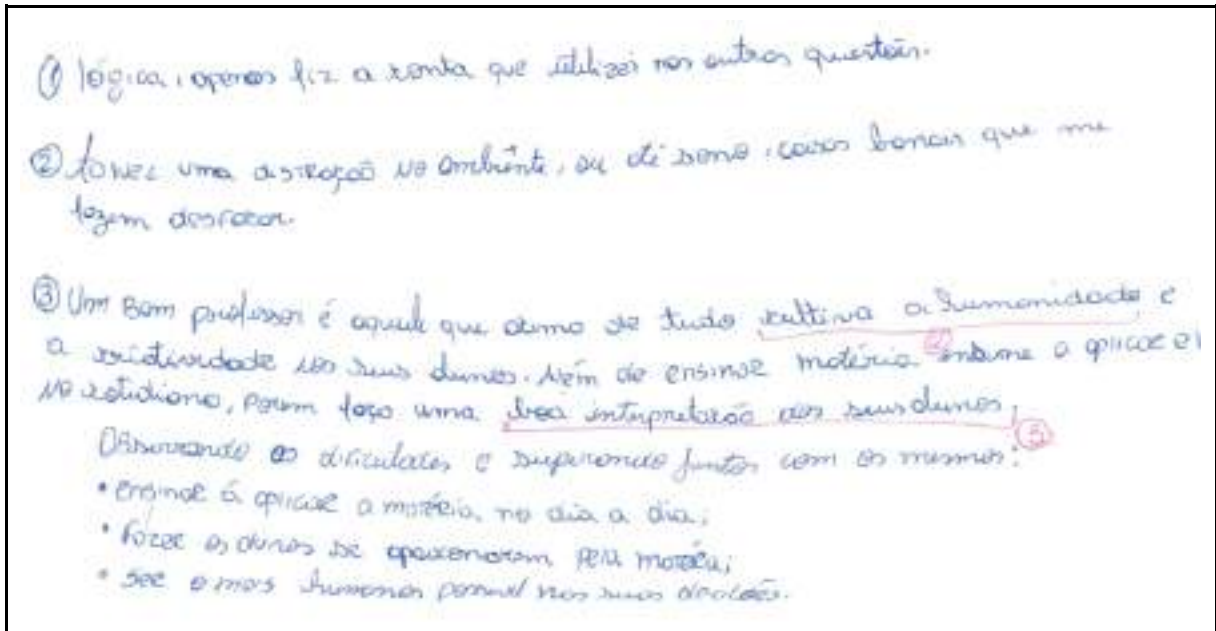 ① lógica, apenas fiz a conta que utilizei nas outras questões.
② talvez uma distração no ambiente, ou até sono, coisas banais que me
fazem desfocar.
③ Um Bom professor é aquele que acima de tudo cultiva a humanidade e
a criatividade nos seus alunos. Além de ensinar matéria ensine a aplicar el
no cotidiano, porem faça uma boa interpretação dos seus alunos,
Observando as dificuldades e superando juntos com os mesmos:
• ensinar á aplicar a matéria, no dia a dia;
• Fazer os alunos se apaixonarem pela matéria;
• ser o mais humano possivel nas suas decisões.